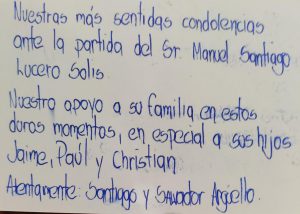 Nuestras más sentidas condolencias
ante la partida del Sr. Manuel Santiago
Lucero Solis.
Nuestro apoyo a su familia en estos
duros momentos, en especial a sus hijos
Jaime, Paúl y Christian.
Atentamente: Santiago y Salvador Argüello.